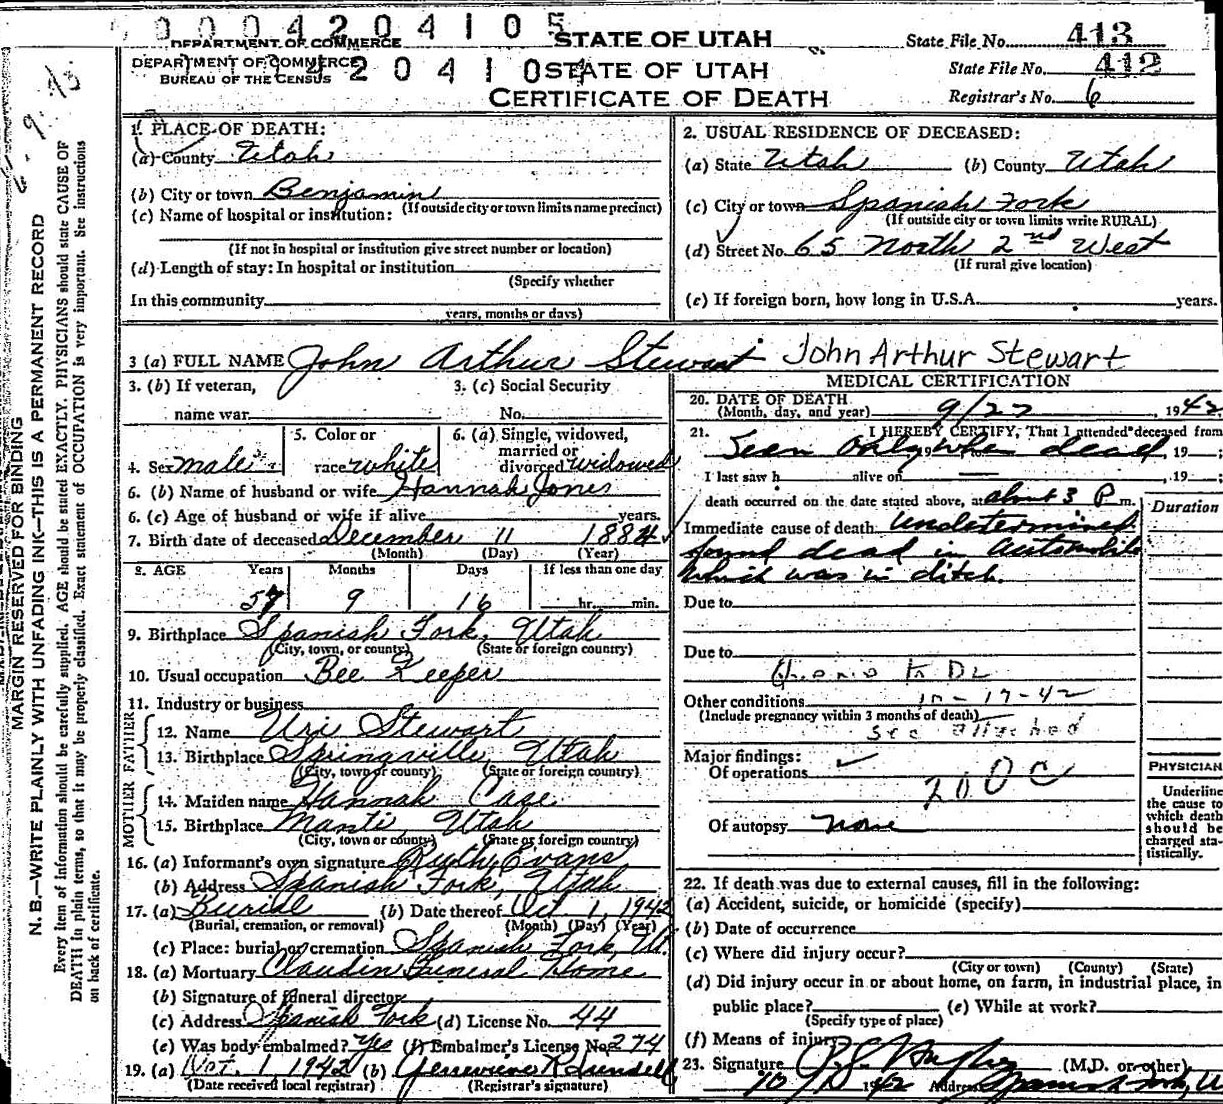 0004204105
DEPARTMENT OF COMMERCE STATE OF UTAH State File No. 413
DEPARTMENT OF COMMERCE
BUREAU OF THE CENSUS 4204104 STATE OF UTAH State File No. 412
CERTIFICATE OF DEATH Registrar's No. 6
MARGIN RESERVED FOR BINDING
N. B.—WRITE PLAINLY WITH UNFADING INK—THIS IS A PERMANENT RECORD
Every item of information should be carefully supplied. AGE should be stated EXACTLY. PHYSICIANS should state CAUSE OF
DEATH in plain terms, so that it may be properly classified. Exact statement of OCCUPATION is very important. See instructions
on back of certificate.
1. PLACE OF DEATH:
(a) County Utah
(b) City or town Benjamin
(If outside city or town limits name precinct)
(c) Name of hospital or institution:
(If not in hospital or institution give street number or location)
(d) Length of stay: In hospital or institution
(Specify whether
In this community
years, months or days)
2. USUAL RESIDENCE OF DECEASED:
(a) State Utah (b) County Utah
(c) City or town Spanish Fork
(If outside city or town limits write RURAL)
(d) Street No. 65 North 2nd West
(If rural give location)
(e) If foreign born, how long in U.S.A. years.
3 (a) FULL NAME John Arthur Stewart John Arthur Stewart
3. (b) If veteran,
name war
3. (c) Social Security
No.
4. Sex male
5. Color or
race white
6. (a) Single, widowed,
married or
divorced widowed
6. (b) Name of husband or wife Hannah Jones
6. (c) Age of husband or wife if alive years.
7. Birth date of deceased December 11 1884
(Month) (Day) (Year)
8. AGE Years Months Days If less than one day
57 9 16 hr. min.
9. Birthplace Spanish Fork, Utah
(City, town, or county) (State or foreign country)
10. Usual occupation Bee Keeper
11. Industry or business
FATHER
12. Name Uri Stewart
13. Birthplace Springville, Utah
(City, town or county) (State or foreign country)
MOTHER
14. Maiden name Hannah Case
15. Birthplace Manti Utah
(City, town or county) (State or foreign country)
16. (a) Informant's own signature Ruth Evans
(b) Address Spanish Fork, Utah
17. (a) Burial (b) Date thereof Oct 1, 1942
(Burial, cremation, or removal) (Month) (Day) (Year)
(c) Place: burial or cremation Spanish Fork, Ut.
18. (a) Mortuary Claudin Funeral Home
(b) Signature of funeral director
(c) Address Spanish Fork (d) License No. 44
(e) Was body embalmed? Yes (f) Embalmer's License No. 274
19. (a) Oct. 1 1942 (b) Genevieve
(Date received local registrar) (Registrar's signature)
MEDICAL CERTIFICATION
20. DATE OF DEATH
(Month, day, and year) 9/27, 1942
21. I HEREBY CERTIFY, That I attended deceased from
Seen only when dead, 19 ;
I last saw h alive on , 19 ;
death occurred on the date stated above, at about 3 P m.
Duration
Immediate cause of death Undetermined
found dead in automobile
which was in ditch.
Due to
Due to
to DL
Other conditions 10-17-42
(Include pregnancy within 3 months of death)
See attached
Major findings:
Of operations
200C
Of autopsy none
PHYSICIAN
Underline
the cause to
which death
should be
charged sta-
tistically.
22. If death was due to external causes, fill in the following:
(a) Accident, suicide, or homicide (specify)
(b) Date of occurrence
(c) Where did injury occur?
(City or town) (County) (State)
(d) Did injury occur in or about home, on farm, in industrial place, in
public place? (e) While at work?
(Specify type of place)
(f) Means of injury
23. Signature (M.D. or other)
1942 Address Spanish Fork, U